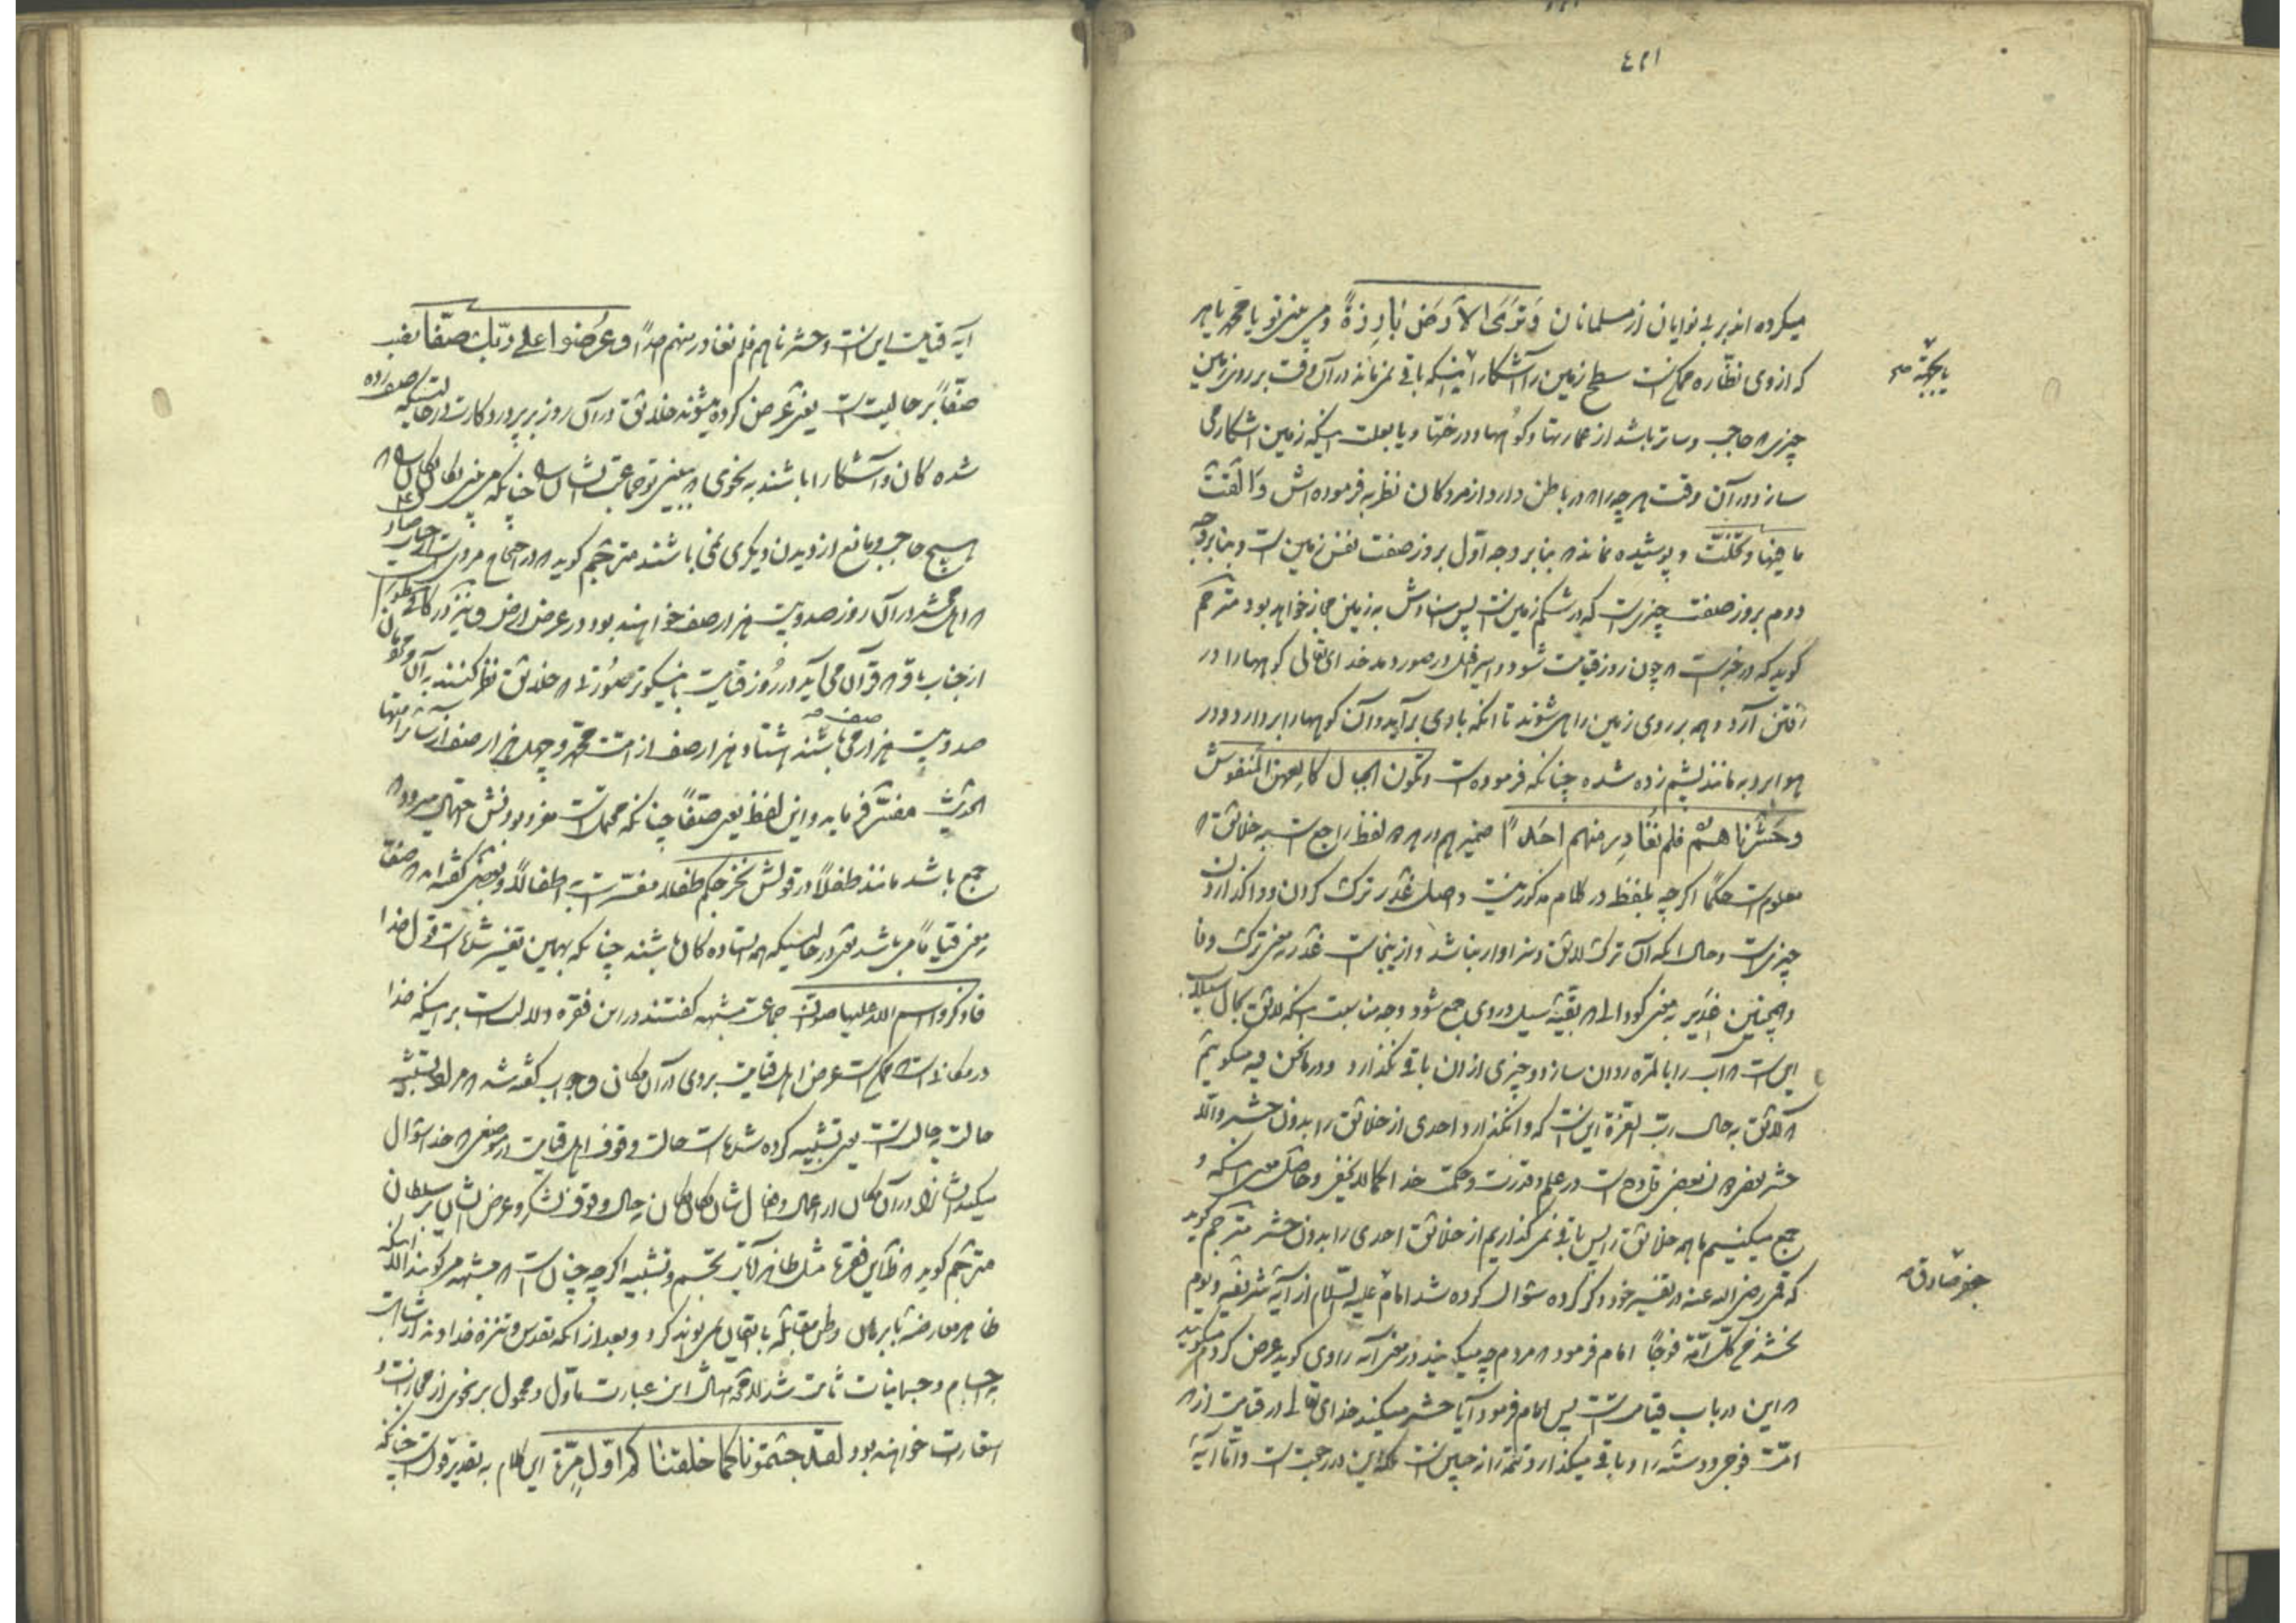 ٤٢١
میکرده اند بر بی نوایان از مسلمانان وَتَرَی الاَرضَ بٰارِزَةً و می بینی تو یا محمد یا هر
که از وی نظاره ممکن است سطح زمین را آشکارا اینکه باقی نمی ماند در آن وقت بر روی زمین
چیزی که حاجب و ساتر باشد از عمارتها و کوهها و درختها و یا بعلت اینکه زمین اشکار می
سازد در آن وقت هر چه را که در باطن دارد از مردکان نظر به فرموده اش وَاَلقَت
ما فیها وتخلّت و پوشیده نماند که بنا بر وجه اوّل بروز صفت نفس زمین است و بنا بر وجه
دوم بروز صفت چیزیست که در شکم زمین است پس اسنادش به زمین مجاز خواهد بود مترجم
گوید که در خبر است که چون روز قیامت شود و اسرافیل در صور دمد خدای تعالی کوهها را در
رفتن آرد و همه بر روی زمین راهی شوند تا انکه بادی برآید و آن کوهها را بردارد و در
هوا برد به مانند پشم زده شده چنانکه فرموده است وتکون الجبال کالعهن المنفوش
وحَشَرناهُم فلم نُغادِر منهم احَداً ضمیر هم در هر دو لفظ راجع است به خلائق که
معلوم است حکماً اکرچه بلفظ در کلام مذکور نیست و اصل غدر ترک کردن و واگذاردن
چیزیست و حال انکه آن ترک لائق و سزاوار نباشد و از اینجاست غدر بمعنی ترک وفا
وهمچنین غدیر بمعنی کودالی که بقیّه سیل در وی جمع شود و وجه مناسبت اینکه لائق بحال سیلاب
این است که آب را بالمرّه روان سازد و چیزی از ان باقی نکذارد و در مانحن فیه میکوئیم
که لائق به حال ربّ العزّة این است که وانکذارد احدی از خلائق را بدون حشر والّا
حشر بعضی دون بعضی قادح است در علم و قدرت و حکمت خدا کما لا یخفی و حاصل معنی اینکه و
جمع میکنیم ما همه خلائق را پس باقی نمی کذاریم از خلائق احدی را بدون حشر مترجم گوید
که قمی رضی الله عنه در تفسیر خود ذکر کرده سؤال کرده شد امام علیه السّلام از آیه شریفه ویوم
نحشر من کلّ امّة فوجاً امام فرمود که مردم چه میکویند در معنی آیه راوی کوید عرض کردم میکویند
که این در باب قیامت است پس امام فرمود آیا حشر میکند خدای تعالی در قیامت از هر
امّت فوجی و دسته را و باقی میکذارد تتمه را نه چنین است بلکه این در رجعت است و امّا آیه
جعفر صادق ص
آیه قیامت این است وحشرناهم فلم نغادر منهم احداً وعُرِضوا علی ربّک صفّا نصب
صفّاً بر حالیت است یعنی عرض کرده میشوند خلائق در آن روز بر پروردکارت در حالتیکه صف زده
شده کان و آشکارا باشند به نحوی که می بینی تو جماعت ایشان را چنانکه می بینی یکان یکان را که
هیچ حاجب و مانع از دیدن دیکری نمی باشند مترجم کوید که در احتجاج مرویست از حضرت صادق
که اهل محشر در آن روز صد و بیست هزار صف خواهند بود در عرض ارض و نیز در کافی
از جناب باقر که قرآن می آید در روز قیامت با نیکوتر صورتی که خلائق نظر کنند به آن و مردمان
صد و بیست هزار صف می باشند هشتاد هزار صف از امّت محمد و چهل هزار صف از سائر امتها
الحدیث مفسّر فرماید و این لفظ یعنی صفّاً چنانکه محمل است مفرد بودنش احتمال میرود که
جمع باشد مانند طفلاً در قولش نخرجکم طفلا مفسّر است به اطفالاً و بعضی گفته اند که صفّا
بمعنی قیاماً می باشد یعنی در حالتیکه همه ایستاده کان باشند چنانکه بهمین تفسیر شده است قول خدا
فاذکروا اسم الله علیها صوافّ جماعت مشبهه کفتند در این فقره دلالت است بر اینکه خدا
در مکانی است که ممکن است عرض اهل قیامت بر وی در آن مکان و جواب گفته شد که مراد تشبیه
حالت به حالت است یعنی تشبیه کرده شده است حالت وقوف اهل قیامت در موضعی که خدا سؤال
میکند ایشان را در آن مکان از اعمال و افعال شان یکان یکان به حال وقوف لشکر و عرض ایشان بر سلطان
مترجم کوید که ظاهر این فقره مثل ظاهر آیات تجسّم و تشبیه اکرچه چنان است که مشبهه می کویند الّا اینکه
ظاهر معارضه با برهان و ظن مقابله با یقین نمی تواند کرد و بعد از انکه تقدس و تنزه خداوند از مشابهت
به اجسام و جسمانیات ثابت شد لا محاله امثال این عبارت مأوّل و محمول بر نحوی از مجازات و
استعارات خواهند بود لقد جئتمونا کما خلقناکم اوّل مَرّة این کلام به تقدیر قول است چنانکه